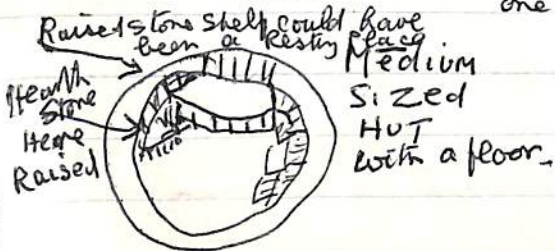 one
Raised stone shelf could have
been a Resting place
Medium
Sized
HUT
with a floor
Hearth
Stone
Here
Raised